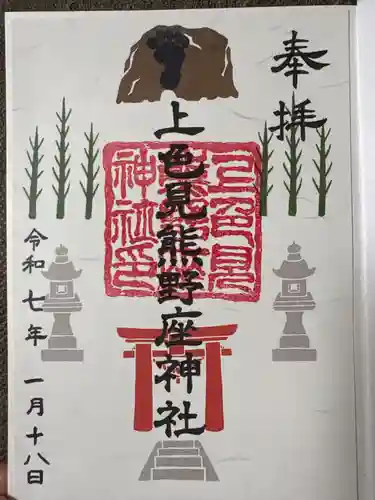 奉拝
上色見熊野座神社
令和七年 一月十八日
上色見
熊野座
神社印